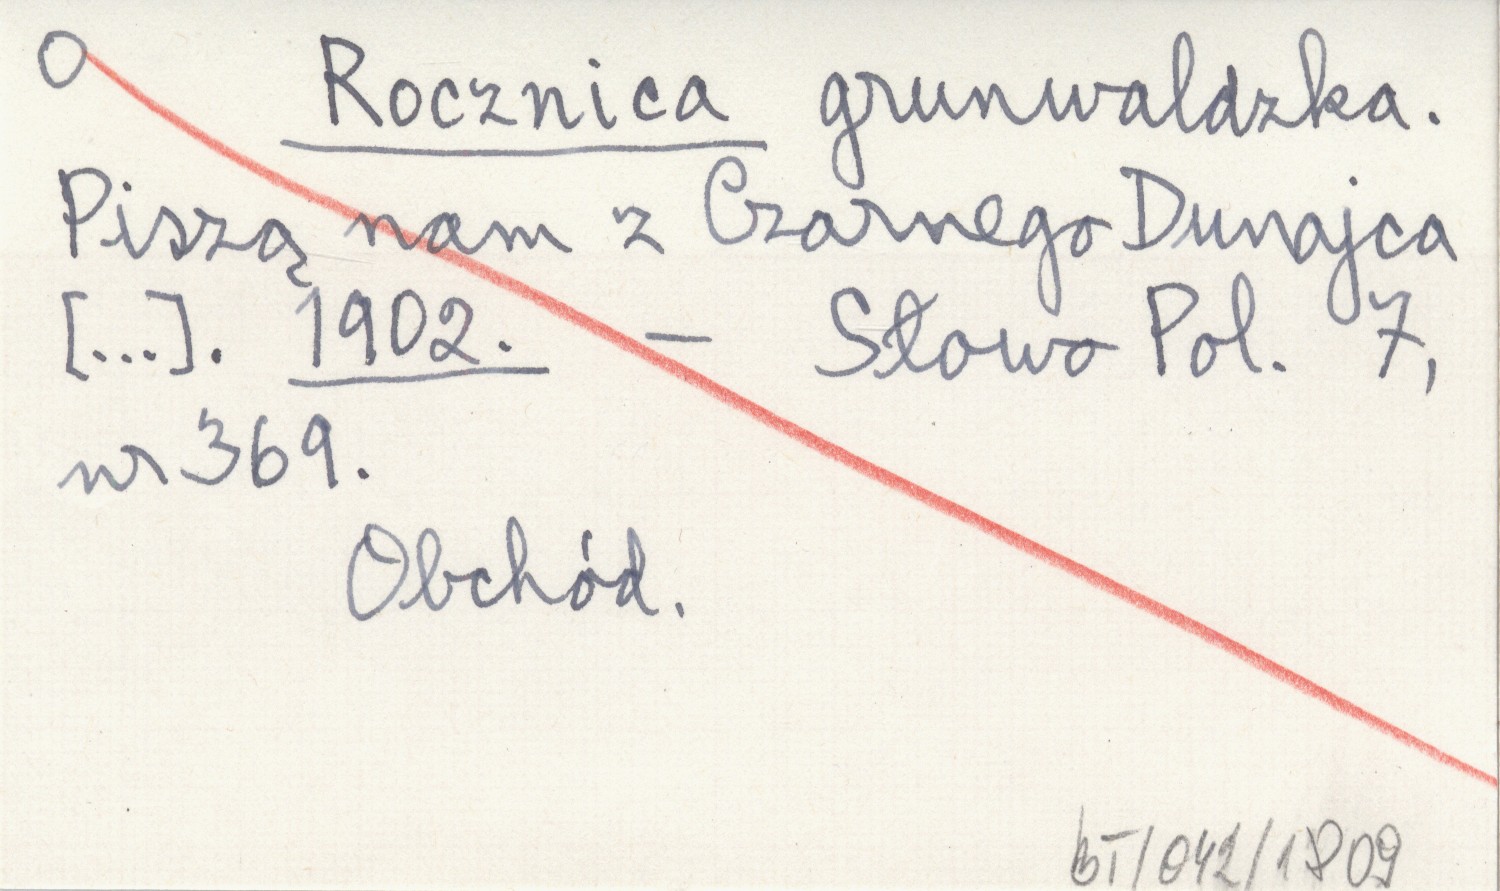 O Rocznica grunwaldzka.
Piszą nam z Czarnego Dunajca
[...]. 1902. — Słowo Pol. 7,
nr 369.
Obchód.
BT/042/1809